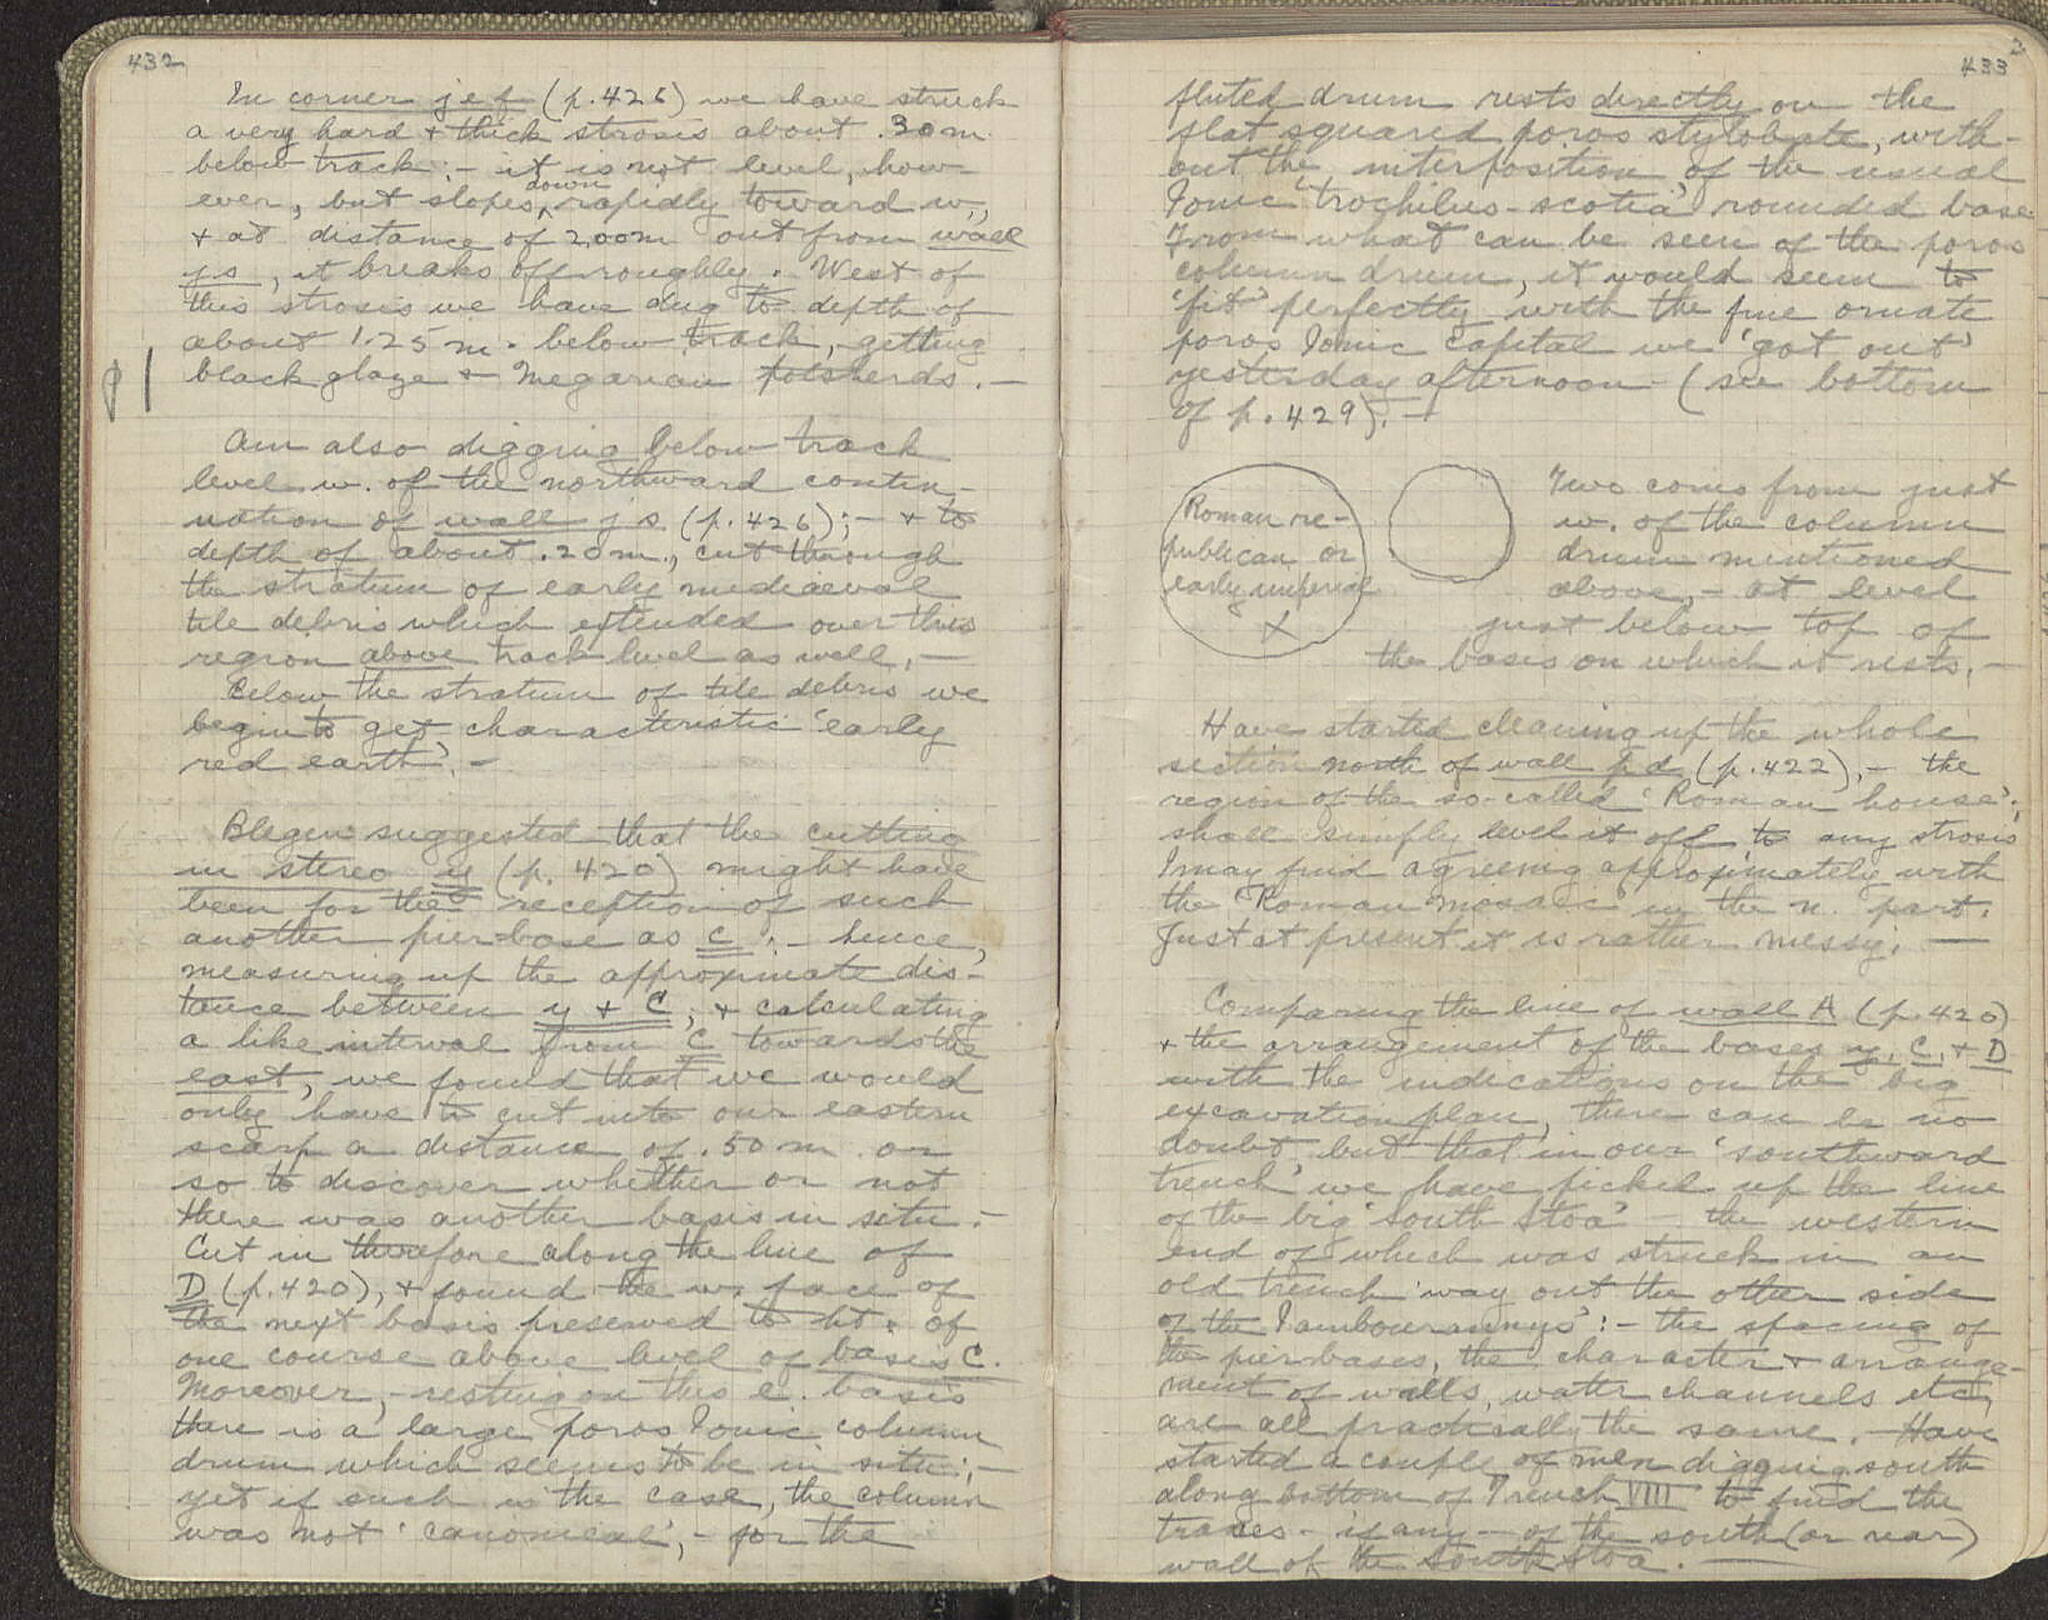 432
In corner j e f (p. 426) we have struck
a very hard + thick strosis about .30 m.
below track :- it is not level, how-
ever, but slopes down rapidly toward w.,
+ at distance of 2.00m out from wall
j s, it breaks off roughly. West of
this strosis we have dug to depth of
about 1.25 m. below track, getting
black glaze + Megarian potsherds. —
Am also digging below track
level w. of the northward contin-
uation of wall j s (p. 426) ; — + to
depth of about .20 m., cut through
the stratum of early mediaeval
tile debris which extended over this
region above track level as well. —
Below the stratum of tile debris we
begin to get characteristic 'early
red earth'. —
Blegen suggested that the cutting
in stereo y (p. 420) might have
been for the reception of such
another pier-base as C ; — hence,
measuring up the approximate dis-
tance between y + C, + calculating
a like interval from C towards the
east, we found that we would
only have to cut into our eastern
scarp a distance of .50 m. or
so to discover whether or not
there was another basis in situ. —
Cut in therefore along the line of
D (p. 420), + found the w. face of
the next basis preserved to ht. of
one course above level of basis C.
Moreover, — resting on this e. basis
there is a large poros Ionic column
drum which seems to be in situ ; —
yet if such is the case, the column
was not 'canonical', — for the
433
fluted drum rests directly on the
flat squared poros stylobate, with-
out the interposition of the usual
Ionic 'trochilus-scotia' rounded base.
From what can be seen of the poros
column drum, it would seem to
'fit' perfectly with the fine ornate
poros Ionic capital we 'got out'
yesterday afternoon (see bottom
of p. 429). —
Roman re-
publican or
early imperial
X
Two coins from just
w. of the column
drum mentioned
above, — at level
just below top of
the basis on which it rests. —
Have started cleaning up the whole
section north of wall p d (p. 422), — the
region of the so-called 'Roman house';
shall simply level it off to any strosis
I may find agreeing approximately with
the Roman mosaic in the n. part.
Just at present it is rather messy. —
Comparing the line of wall A (p. 420)
+ the arrangement of the bases y, C, + D
with the indications on the big
excavation plan, there can be no
doubt but that in our 'southward
trench' we have picked up the line
of the big 'South Stoa' — the western
end of which was struck in an
old trench 'way out the other side
of the Tambourannys' : — the spacing of
the pier-bases, the character + arrange-
ment of walls, water channels etc,
are all practically the same. — Have
started a couple of men digging south
along bottom of Trench VIII to find the
traces — if any — of the south (or rear)
wall of the South Stoa. —